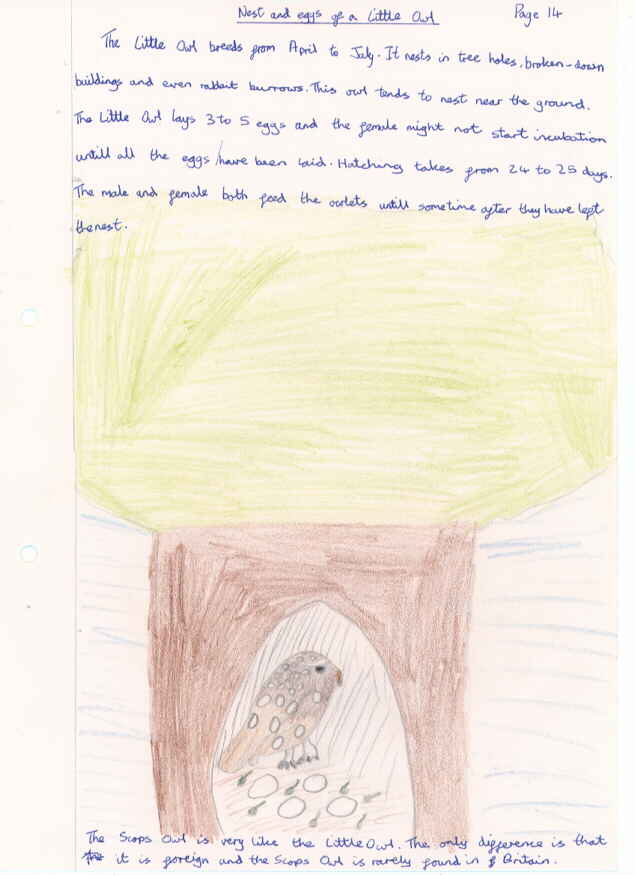 Nest and eggs of a Little Owl Page 14
The Little Owl breeds from April to July. It nests in tree holes, broken-down
buildings and even rabbit burrows. This owl tends to nest near the ground.
The Little Owl lays 3 to 5 eggs and the female might not start incubation
untill all the eggs have been laid. Hatching takes from 24 to 25 days.
The male and female both feed the owlets untill sometime after they have left
the nest.
The Scops Owl is very like the Little Owl. The only difference is that
it is foreign and the Scops Owl is rarely found in Britain.